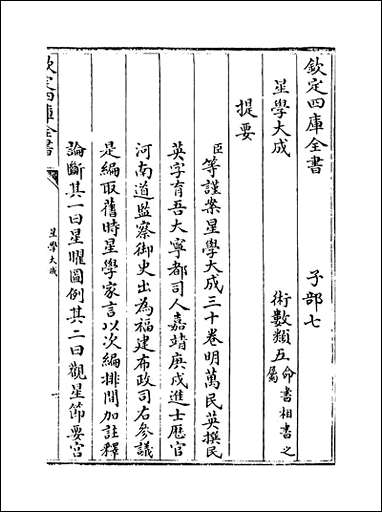 欽定四庫全書
子部七
星學大成
術數類五命書相書之屬
提要
臣等謹案星學大成三十卷明萬民英撰民
英字育吾大寧都司人嘉靖庚戌進士歴官
河南道監察御史出為福建布政司右參議
是編取舊時星學家言以次編排間加註釋
論斷其一曰星曜圖例其二曰觀星節要宫
欽定四庫全書
星學大成